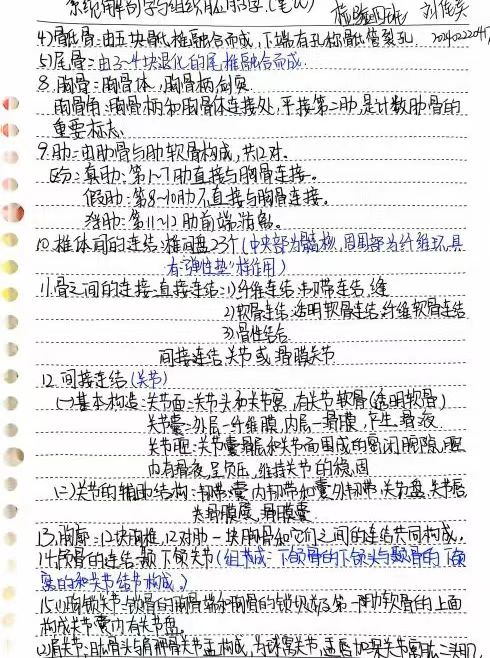 系统解剖学与组织胚胎学(笔记) 检验四班 刘俊英
4)骶骨:由五块骶椎融合而成,下端有孔称骶管裂孔
5)尾骨:由3-4块退化的尾椎融合而成.
8.胸骨:胸骨体,胸骨柄,剑突.
胸骨角:胸骨柄和胸骨体连接处,平接第二肋,是计数肋骨的
重要标志.
9.肋:由肋骨与肋软骨构成,共12对.
区分:真肋:第1~7肋直接与胸骨连接。
假肋:第8~10肋不直接与胸骨连接。
浮肋:第11~12肋前端游离。
10.椎体间的连结:椎间盘23个(中央部为髓核,周围部为纤维环,具
有“弹性垫”样作用)
11.骨之间的连接:直接连结:1)纤维连结:韧带连结,缝
2)软骨连结:透明软骨连结,纤维软骨连结
3)骨性结合
间接连结:关节或滑膜关节
12.间接连结(关节)
(一)基本构造:关节面:关节头和关节窝,有关节软骨(透明软骨)
关节囊:外层-纤维膜,内层-滑膜,产生滑液
关节腔:关节囊滑膜层和关节面围成的密闭腔隙,腔
内有滑液,呈负压,维持关节的稳固
(二)关节的辅助结构:韧带:囊内韧带和囊外韧带,关节盘,关节唇,
滑膜襞,滑膜囊
13.胸廓:12块胸椎,12对肋,一块胸骨和它们之间的连结共同构成.
14.颅骨的连结:颞下颌关节(组成:下颌骨的下颌头与颞骨的下颌
窝的和关节结节构成.)
15.(1)胸锁关节:锁骨的胸骨端和胸骨的锁切迹及第一肋软骨的上面
构成,关节囊内有关节盘.
(2)肩关节:肱骨头与肩胛骨关节盂构成,为球窝关节,